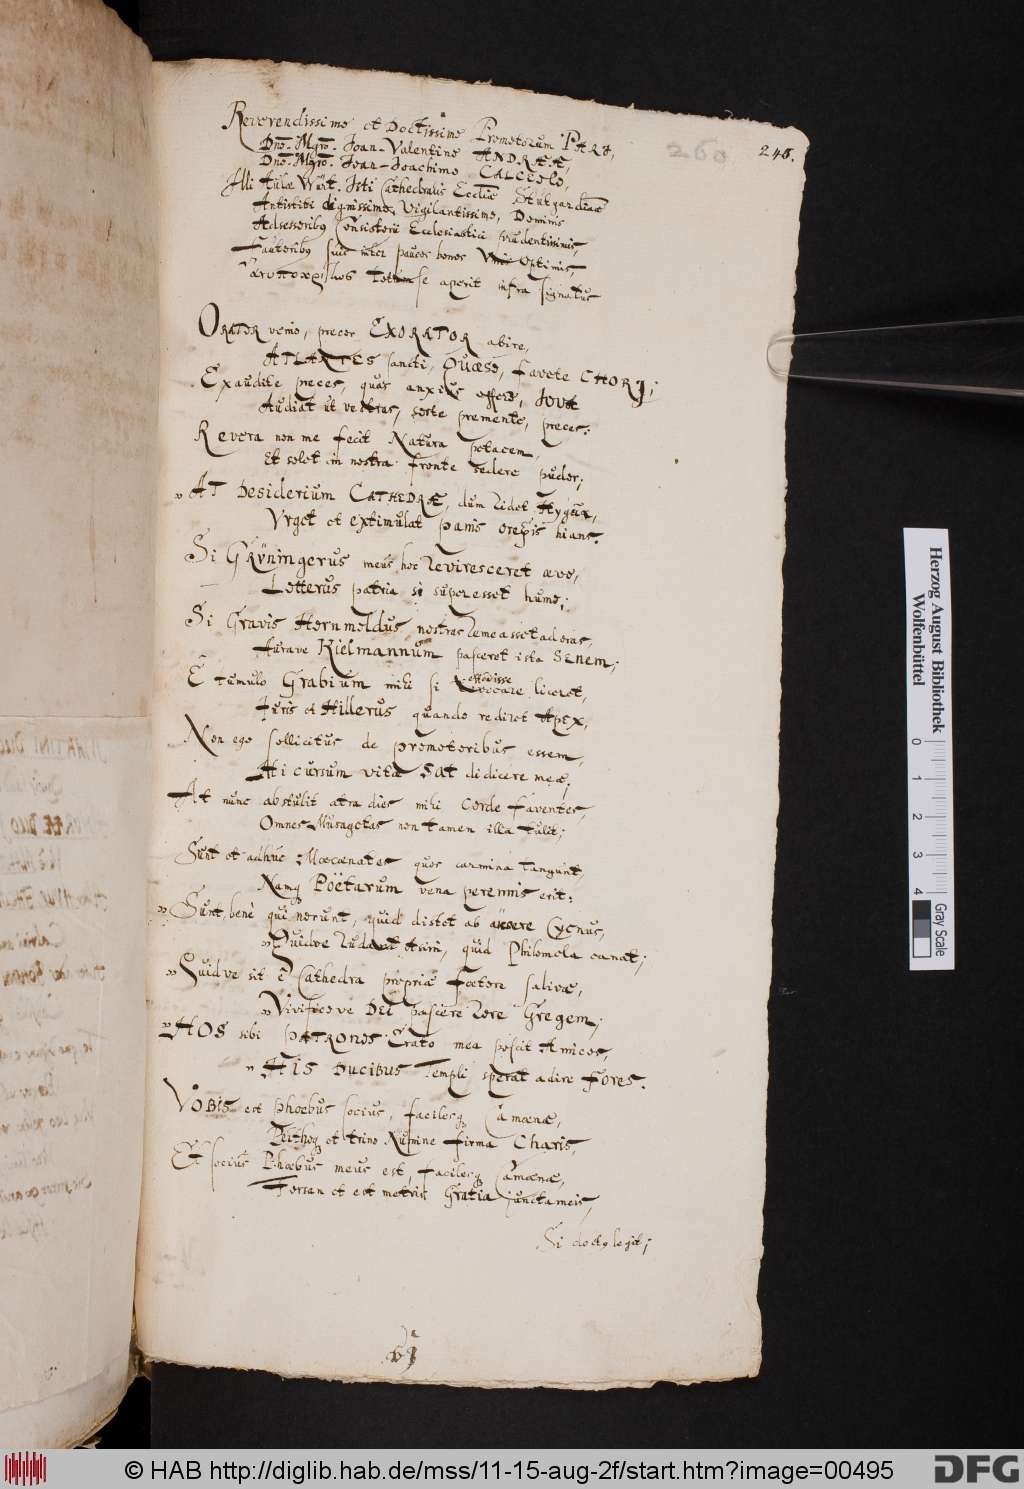 260 246.
Reverendissimo et Doctissimo Promotorum PARI,
Dno. Mgro. Joan-Valentino ANDREÆ,
Dno. Mgro. Joan-Joachimo CALCEOLO,
Illi Aulæ Würt. Isti Cathedralis Eccliæ Stutgardianæ
Antistiti dignissimo, Vigilantissimo, Dominis
Adsessoribus Consistorii Ecclesiastici prudentissimis,
Fautoribus suis inter paucos bonos Optimis,
se aperit infra signatus
ORATOR venio, precor EXORATOR abire,
ATLANTES sancti, QUÆSO, favete CHORI;
Exaudite preces, quas anxius offero, JOVA
Audiat ut vestras, sorte premente, preces:
Revera non me fecit Natura petacem,
Et solet in nostra fronte sedere pudor;
" AT Desiderium CATHEDRÆ, dum ridet Hygeia,
Urget et extimulat panis hians.
Si GRÜNingerus meus hoc reviresceret ævo,
Lotterus patria si superesset humo;
Si Gravis Hornmoldus nostras remeasset ad oras,
Aurave Kielmannum pasceret ista SENEM;
E tumulo Grabium mihi si effodisse revocare liceret,
Juris et Hillerus quando rediret APEX,
Non ego sollicitus de promotoribus essem,
Hi cursum vitæ SAT didicere meæ;
At nunc abstulit atra dies mihi corde faventes,
Omnes Musagetas non tamen illa tulit;
Sunt et adhuc Mœcenates quos carmina tangunt,
Namq Poëtarum vena perennis erit:
" Sunt benè qui norunt, quid distet ab ansere Cygnus,
" Quidve rudant Asini, quid Philomela canat;
" Quidve sit è Cathedra propriæ fœtere salivæ,
" Vivificove DEI pascere rore Gregem;
" HOS sibi PATRONOS Erato mea poscit Amicos,
" HIS DUCIBUS Templi sperat adire FORES.
VOBIS est Phoebus socius, facilesq Camœnæ,
Peithoq et trino Numine firma Charis,
Et socius Phœbus meus est, facilesq Camœnæ,
Forsan et est metris Gratia juncta meis,
Si doctq legit;
Herzog August Bibliothek
Wolfenbüttel
0 1 2 3 4
Gray Scale
© HAB http://diglib.hab.de/mss/11-15-aug-2f/start.htm?image=00495
DFG